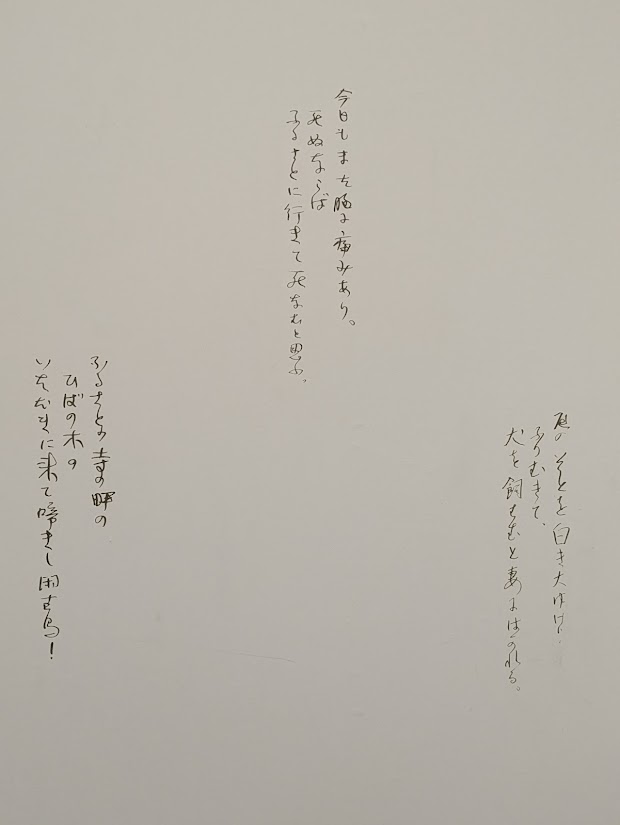 庭のそとを白き犬ゆけり。
ふりむきて、
犬を飼はむと妻にはかれる。
今日もまた胸に痛みあり。
死ぬならば
ふるさとに行きて死なむと思ふ。
ふるさとの寺の畔の
ひばの木の
いただきに来て啼きし閑古鳥！